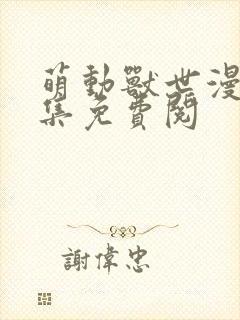 萌動獸世漫
集免費閱
謝偉忠